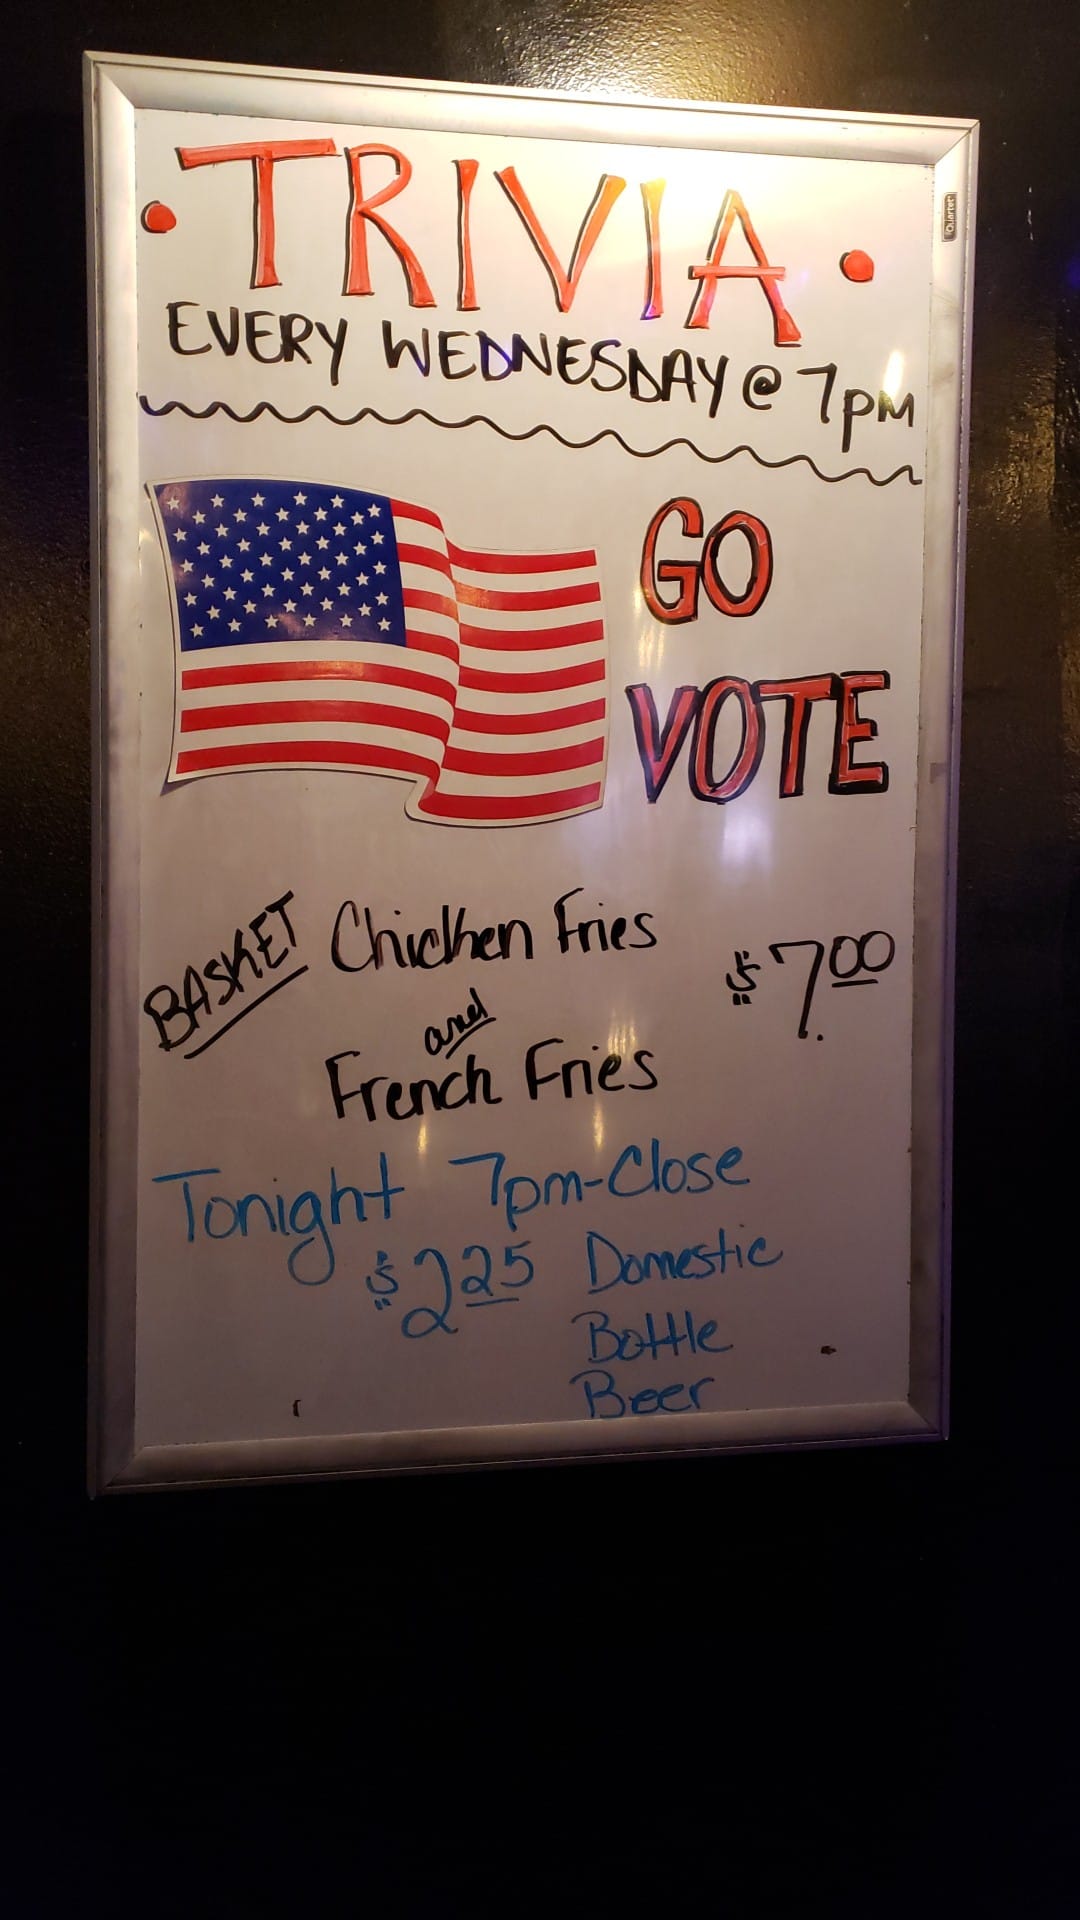 • TRIVIA •
EVERY WEDNESDAY @ 7pm
GO
VOTE
BASKET Chicken Fries $7.00
and
French Fries
Tonight 7pm-Close
$2 25 Domestic
Bottle
Beer
Quartet